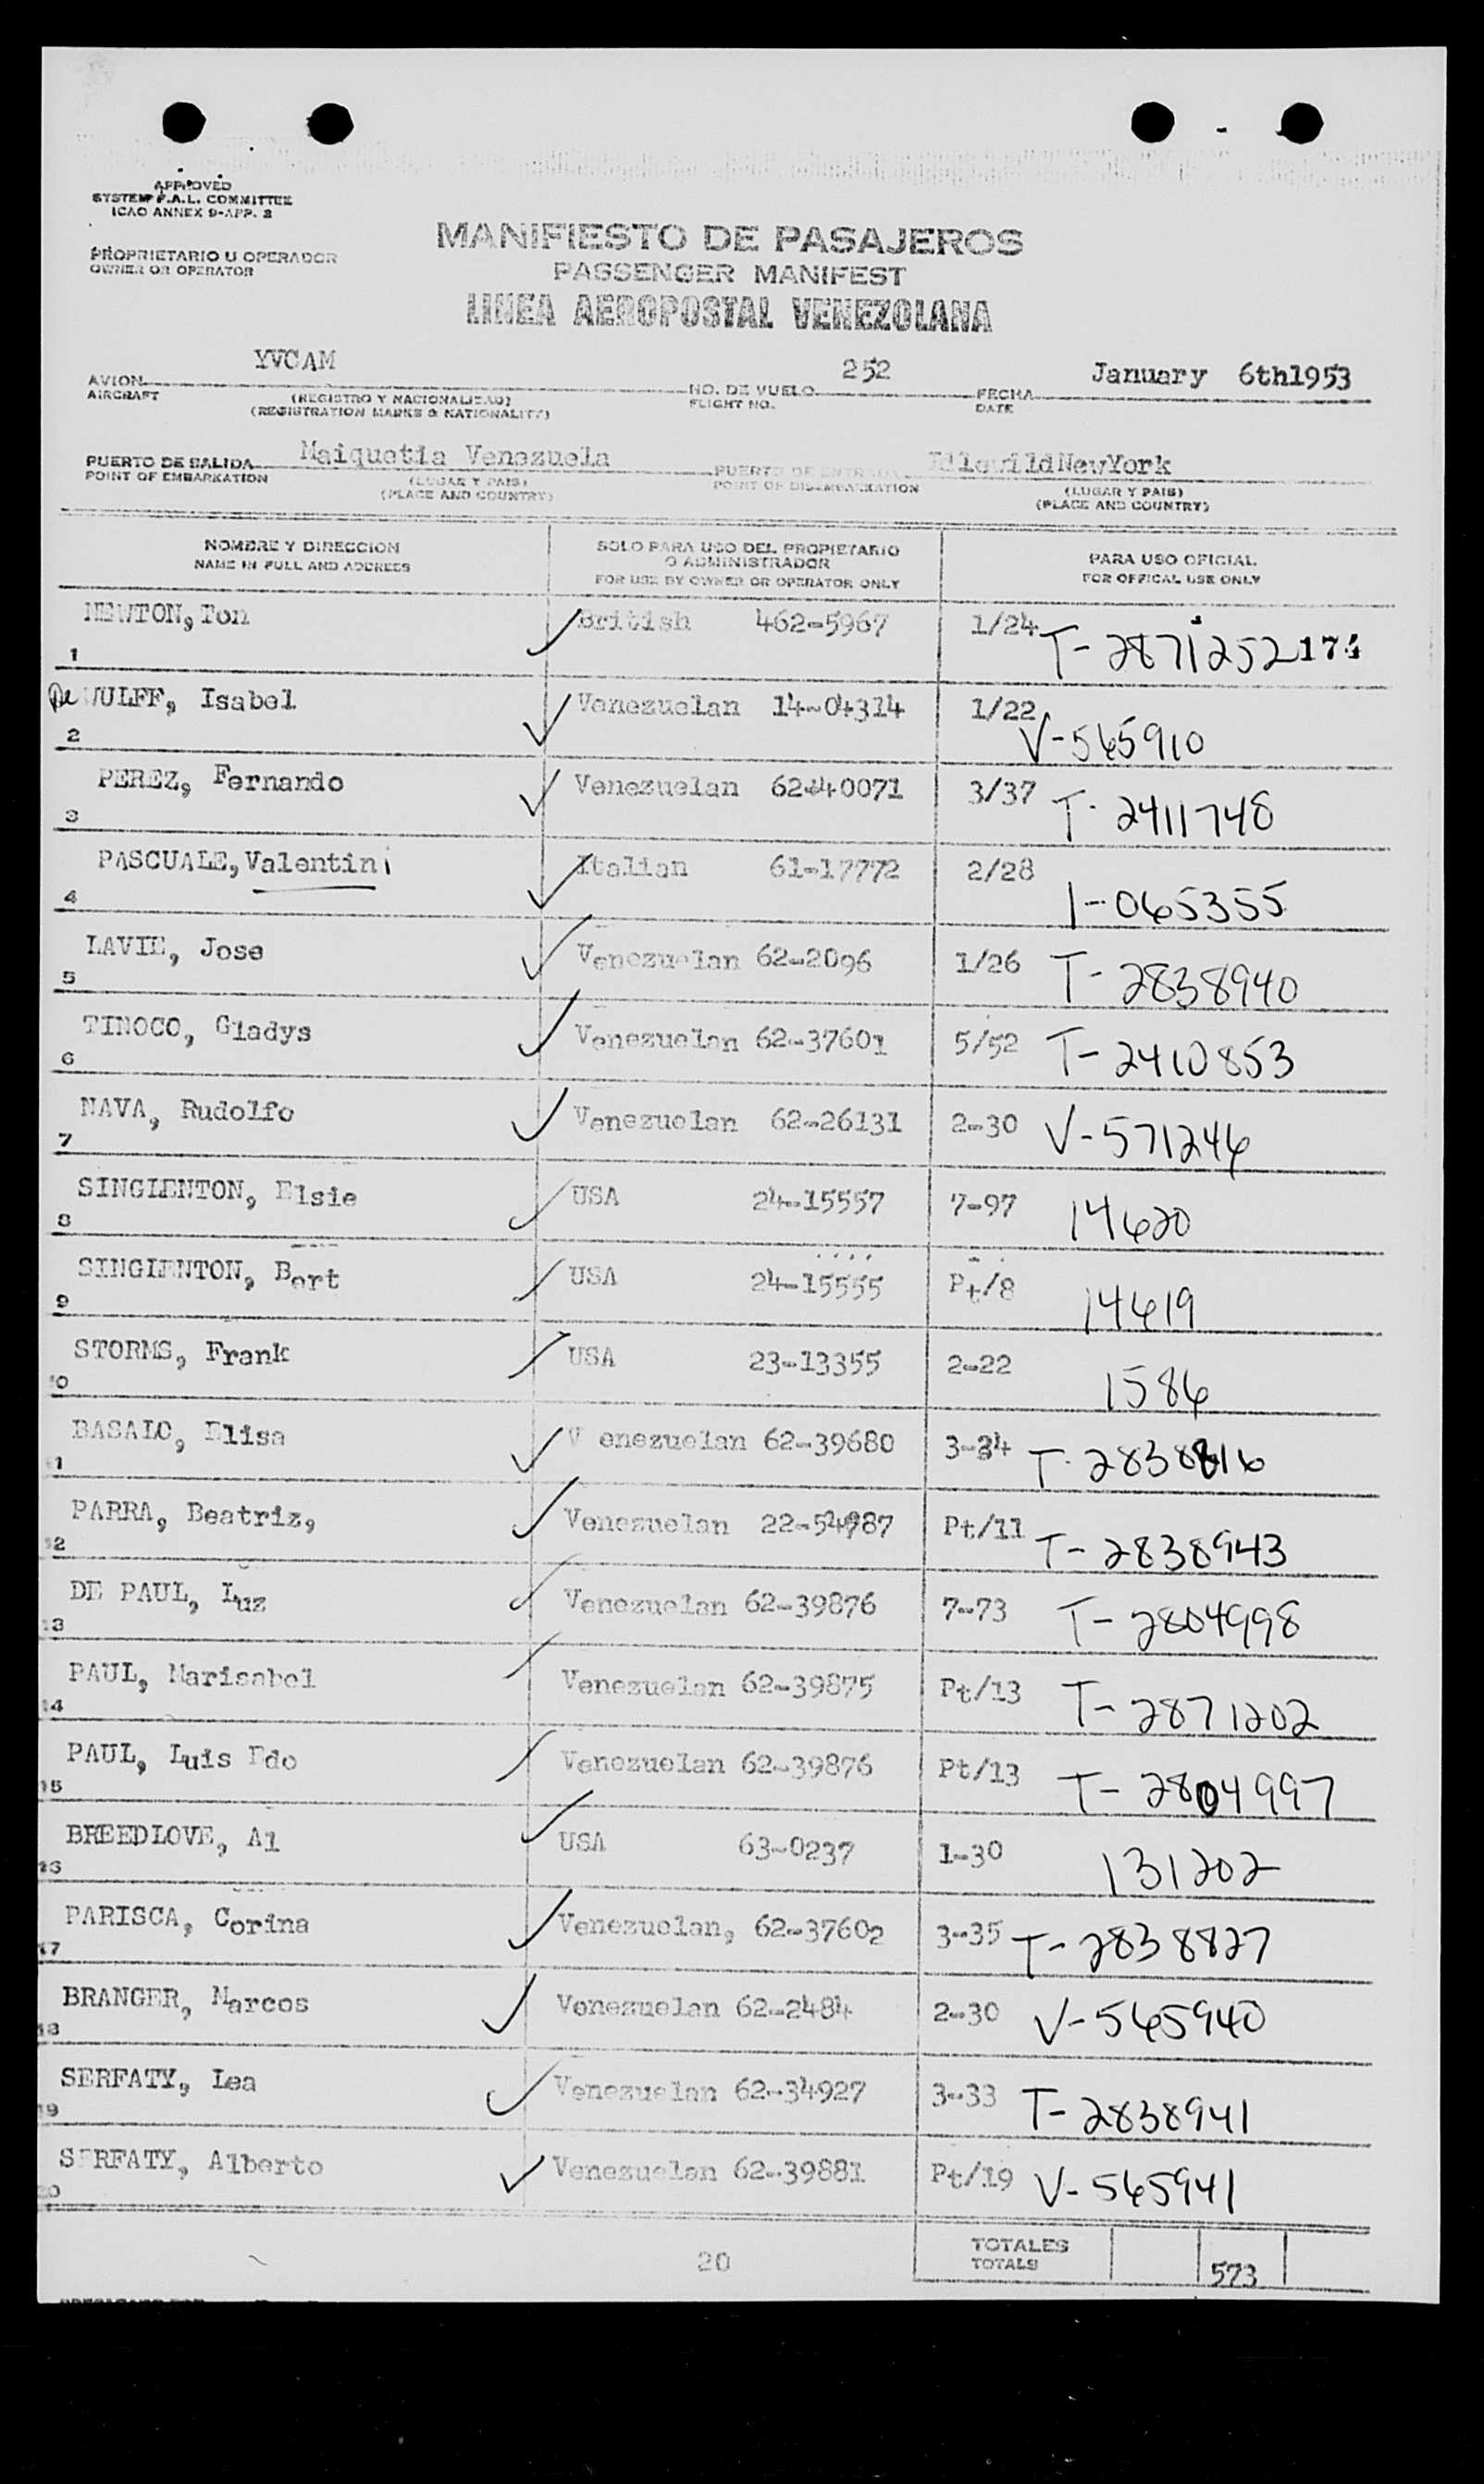 APPROVED
SYSTEM F.A.L. COMMITTEE
ICAO ANNEX 9-APP. 2
PROPRIETARIO U OPERADOR
OWNER OR OPERATOR
MANIFIESTO DE PASAJEROS
PASSENGER MANIFEST
LINEA AEROPOSTAL VENEZOLANA
AVION YVCAM NO. DE VUELO 252 FECHA January 6th1953
AIRCRAFT (REGISTRO Y NACIONALIDAD) FLIGHT NO. DATE
(REGISTRATION MARKS & NATIONALITY)
PUERTO DE SALIDA Maiquetia Venezuela PUERTO DE ENTRADA IdlewildNewYork
POINT OF EMBARKATION (LUGAR Y PAIS) POINT OF DISEMBARKATION (LUGAR Y PAIS)
(PLACE AND COUNTRY) (PLACE AND COUNTRY)
NOMBRE Y DIRECCION SOLO PARA USO DEL PROPIETARIO O ADMINISTRADOR PARA USO OFICIAL
NAME IN FULL AND ADDRESS FOR USE BY OWNER OR OPERATOR ONLY FOR OFFICAL USE ONLY
1 NEWTON, Ton British 462-5967 1/24 T-2871252
2 De WULFF, Isabel Venezuelan 14-04314 1/22 V-565910
3 PEREZ, Fernando Venezuelan 62-40071 3/37 T-2411748
4 PASCUALE, Valentini Italian 61-17772 2/28 1-065355
5 LAVIE, Jose Venezuelan 62-2096 1/26 T-2838940
6 TINOCO, Gladys Venezuelan 62-37601 5/52 T-2410853
7 NAVA, Rudolfo Venezuelan 62-26131 2-30 V-571246
8 SINGLENTON, Elsie USA 24-15557 7-97 14620
9 SINGLENTON, Bert USA 24-15555 Pt/8 14619
10 STORMS, Frank USA 23-13355 2-22 1586
11 BASALO, Elisa Venezuelan 62-39680 3-34 T-2838816
12 PARRA, Beatriz, Venezuelan 22-54987 Pt/11 T-2838943
13 DE PAUL, Luz Venezuelan 62-39876 7-73 T-2804998
14 PAUL, Marisabel Venezuelan 62-39875 Pt/13 T-2871202
15 PAUL, Luis Edo Venezuelan 62-39876 Pt/13 T-2804997
16 BREEDLOVE, Al USA 63-0237 1-30 131202
17 PARISCA, Corina Venezuelan, 62-37602 3-35 T-2838827
18 BRANGER, Marcos Venezuelan 62-2484 2-30 V-565940
19 SERFATY, Lea Venezuelan 62-34927 3-33 T-2838941
20 SERFATY, Alberto Venezuelan 62-39881 Pt/19 V-565941
20 TOTALES 573
TOTALS